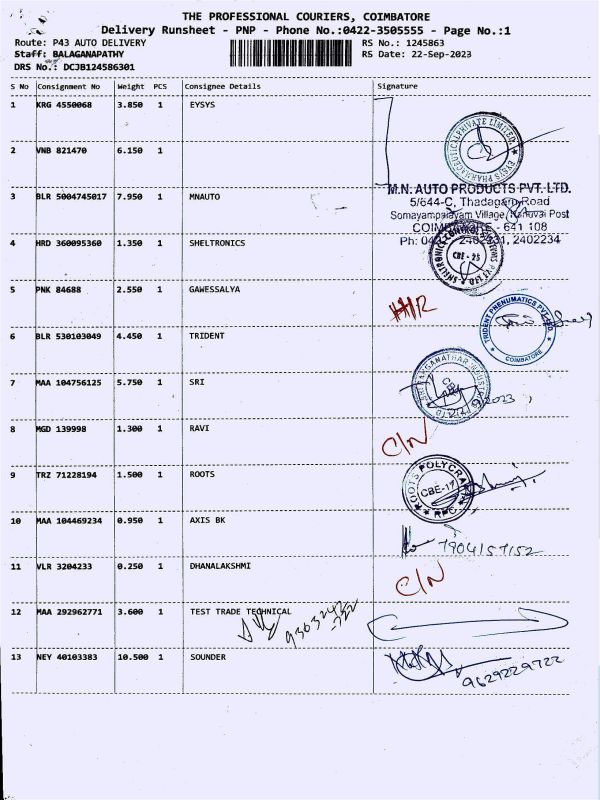 THE PROFESSIONAL COURIERS, COIMBATORE
Delivery Runsheet - PNP - Phone No.:0422-3505555 - Page No.:1
Route: P43 AUTO DELIVERY RS No.: 1245863
Staff: BALAGANAPATHY RS Date: 22-Sep-2023
DRS No.: DCJB124586301
S No Consignment No Weight PCS Consignee Details Signature
1 KRG 4550068 3.850 1 EYSYS
EYSYS PHARMACEUTICAL PRIVATE LIMITED
2 VNB 821470 6.150 1
M.N. AUTO PRODUCTS PVT. LTD.
3 BLR 5004745017 7.950 1 MNAUTO
5/644-C, Thadagam Road
Somayampalayam Village, Kanuvai Post
COIMBATORE - 641 108
4 HRD 360095360 1.350 1 SHELTRONICS
2402234
CBE - 23
5 PNK 84688 2.550 1 GAWESSALYA
6 BLR 530103049 4.450 1 TRIDENT
TRIDENT PNEUMATICS PVT. LTD.
COIMBATORE
7 MAA 104756125 5.750 1 SRI
2023
8 MGD 139998 1.300 1 RAVI
C/N
9 TRZ 71228194 1.500 1 ROOTS
ROOTS POLYCRAFT
CBE-17
RPC
10 MAA 104469234 0.950 1 AXIS BK
7904157152
11 VLR 3204233 0.250 1 DHANALAKSHMI
C/N
12 MAA 292962771 3.600 1 TEST TRADE TECHNICAL
13 NEY 40103383 10.500 1 SOUNDER
9629229722